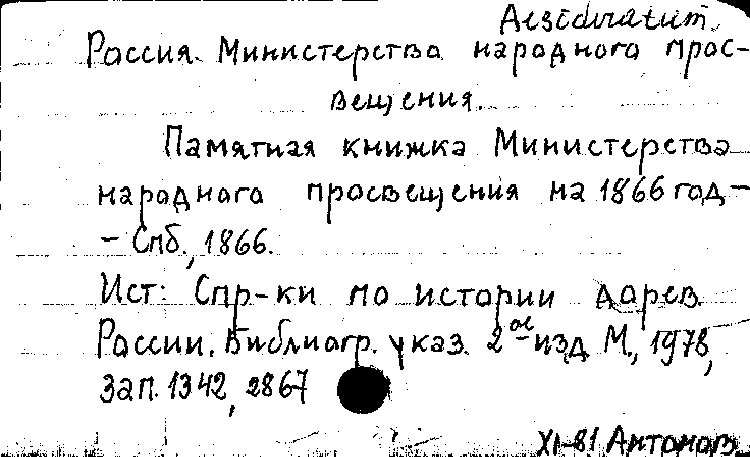 Desideratum.
Россия. Министерство народного прос-
вещения.
Памятная книжка Министерства
народного просвещения на 1866 год. -
- Спб., 1866.
Ист: Спр-ки по истории дорев.
России. Библиогр. указ. 2ое изд М., 1978,
зап. 1342, 2867
XI-81 Антонов